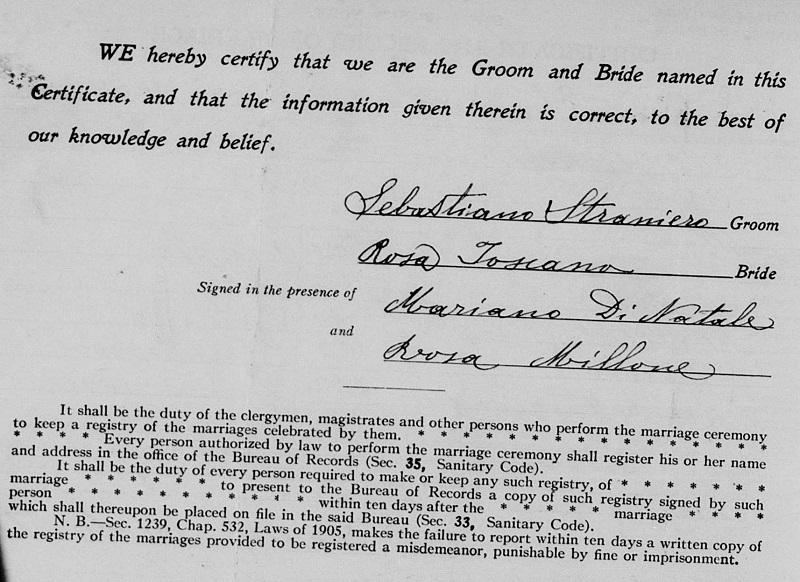 WE hereby certify that we are the Groom and Bride named in this
Certificate, and that the information given therein is correct, to the best of
our knowledge and belief.
Sebastiano Straniero Groom
Rosa Toscano Bride
Signed in the presence of Mariano Di Natale
and Rosa Millone
It shall be the duty of the clergymen, magistrates and other persons who perform the marriage ceremony
to keep a registry of the marriages celebrated by them. * * * * * * * * * * * * * *
* * * * Every person authorized by law to perform the marriage ceremony shall register his or her name
and address in the office of the Bureau of Records (Sec. 35, Sanitary Code).
It shall be the duty of every person required to make or keep any such registry, of * * * * * *
marriage * * * * * * to present to the Bureau of Records a copy of such registry signed by such
person * * * * * * * * * * * within ten days after the * * * * * marriage * * * *
which shall thereupon be placed on file in the said Bureau (Sec. 33, Sanitary Code).
N. B.—Sec. 1239, Chap. 532, Laws of 1905, makes the failure to report within ten days a written copy of
the registry of the marriages provided to be registered a misdemeanor, punishable by fine or imprisonment.